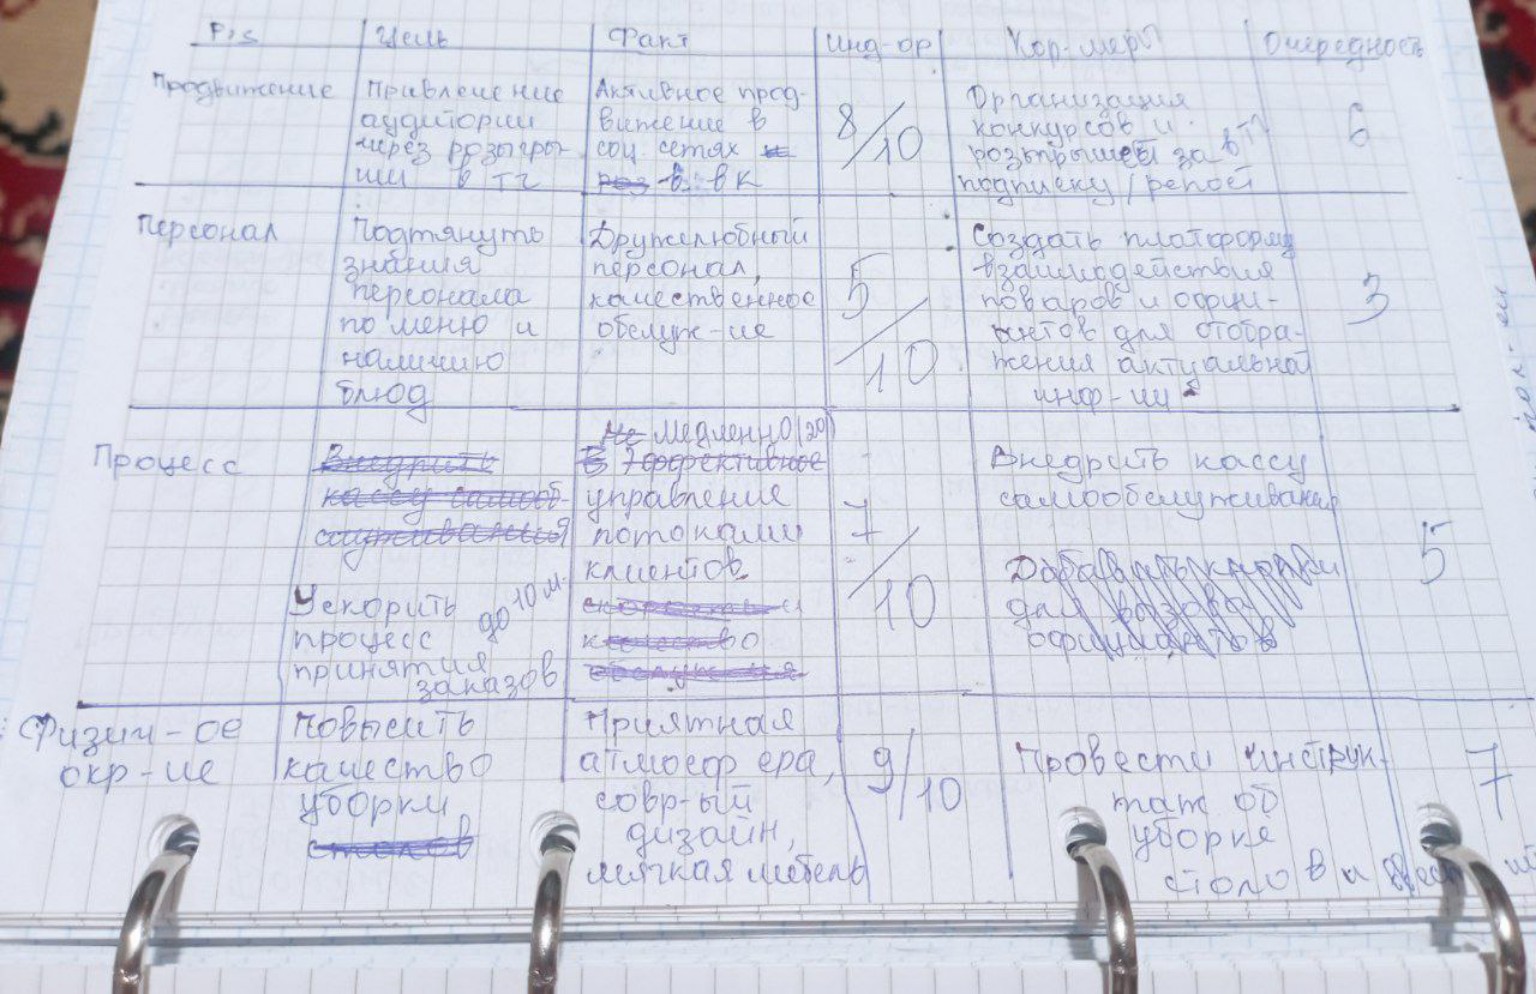 P,s Цель Факт Инд-ор Кор-меры Очередность
Продвижение
Привлечение
аудитории
через розыгры-
ши в тг
Активное прод-
вижение в
соц. сетях и
роз в. вк
8/10
Организация
конкурсов и
розыгрышей за в тг
подписку/репост
6
Персонал
Подтянуть
знания
персонала
по меню и
наличию
блюд
Дружелюбный
персонал,
качественное
обслуж-ие
5/10
Создать платформу
взаимодействия
поваров и офици-
антов для отобра-
жения актуальной
инф-ии
3
Процесс
Внедрить
кассу самооб-
служивания
Ускорить до 10 м.
процесс
принятия
заказов
Не медленно (20)
В эффективное
управление
потоками
клиентов
качество
7/10
Внедрить кассу
самообслуживания
Добавить кнопки
для вызова
официантов
5
Физич-ое
окр-ие
Повысить
качество
уборки
столов
Приятная
атмосфера,
совр-ый
дизайн,
мягкая мебель
9/10
Провести инструк-
таж об
уборке
столов и
7